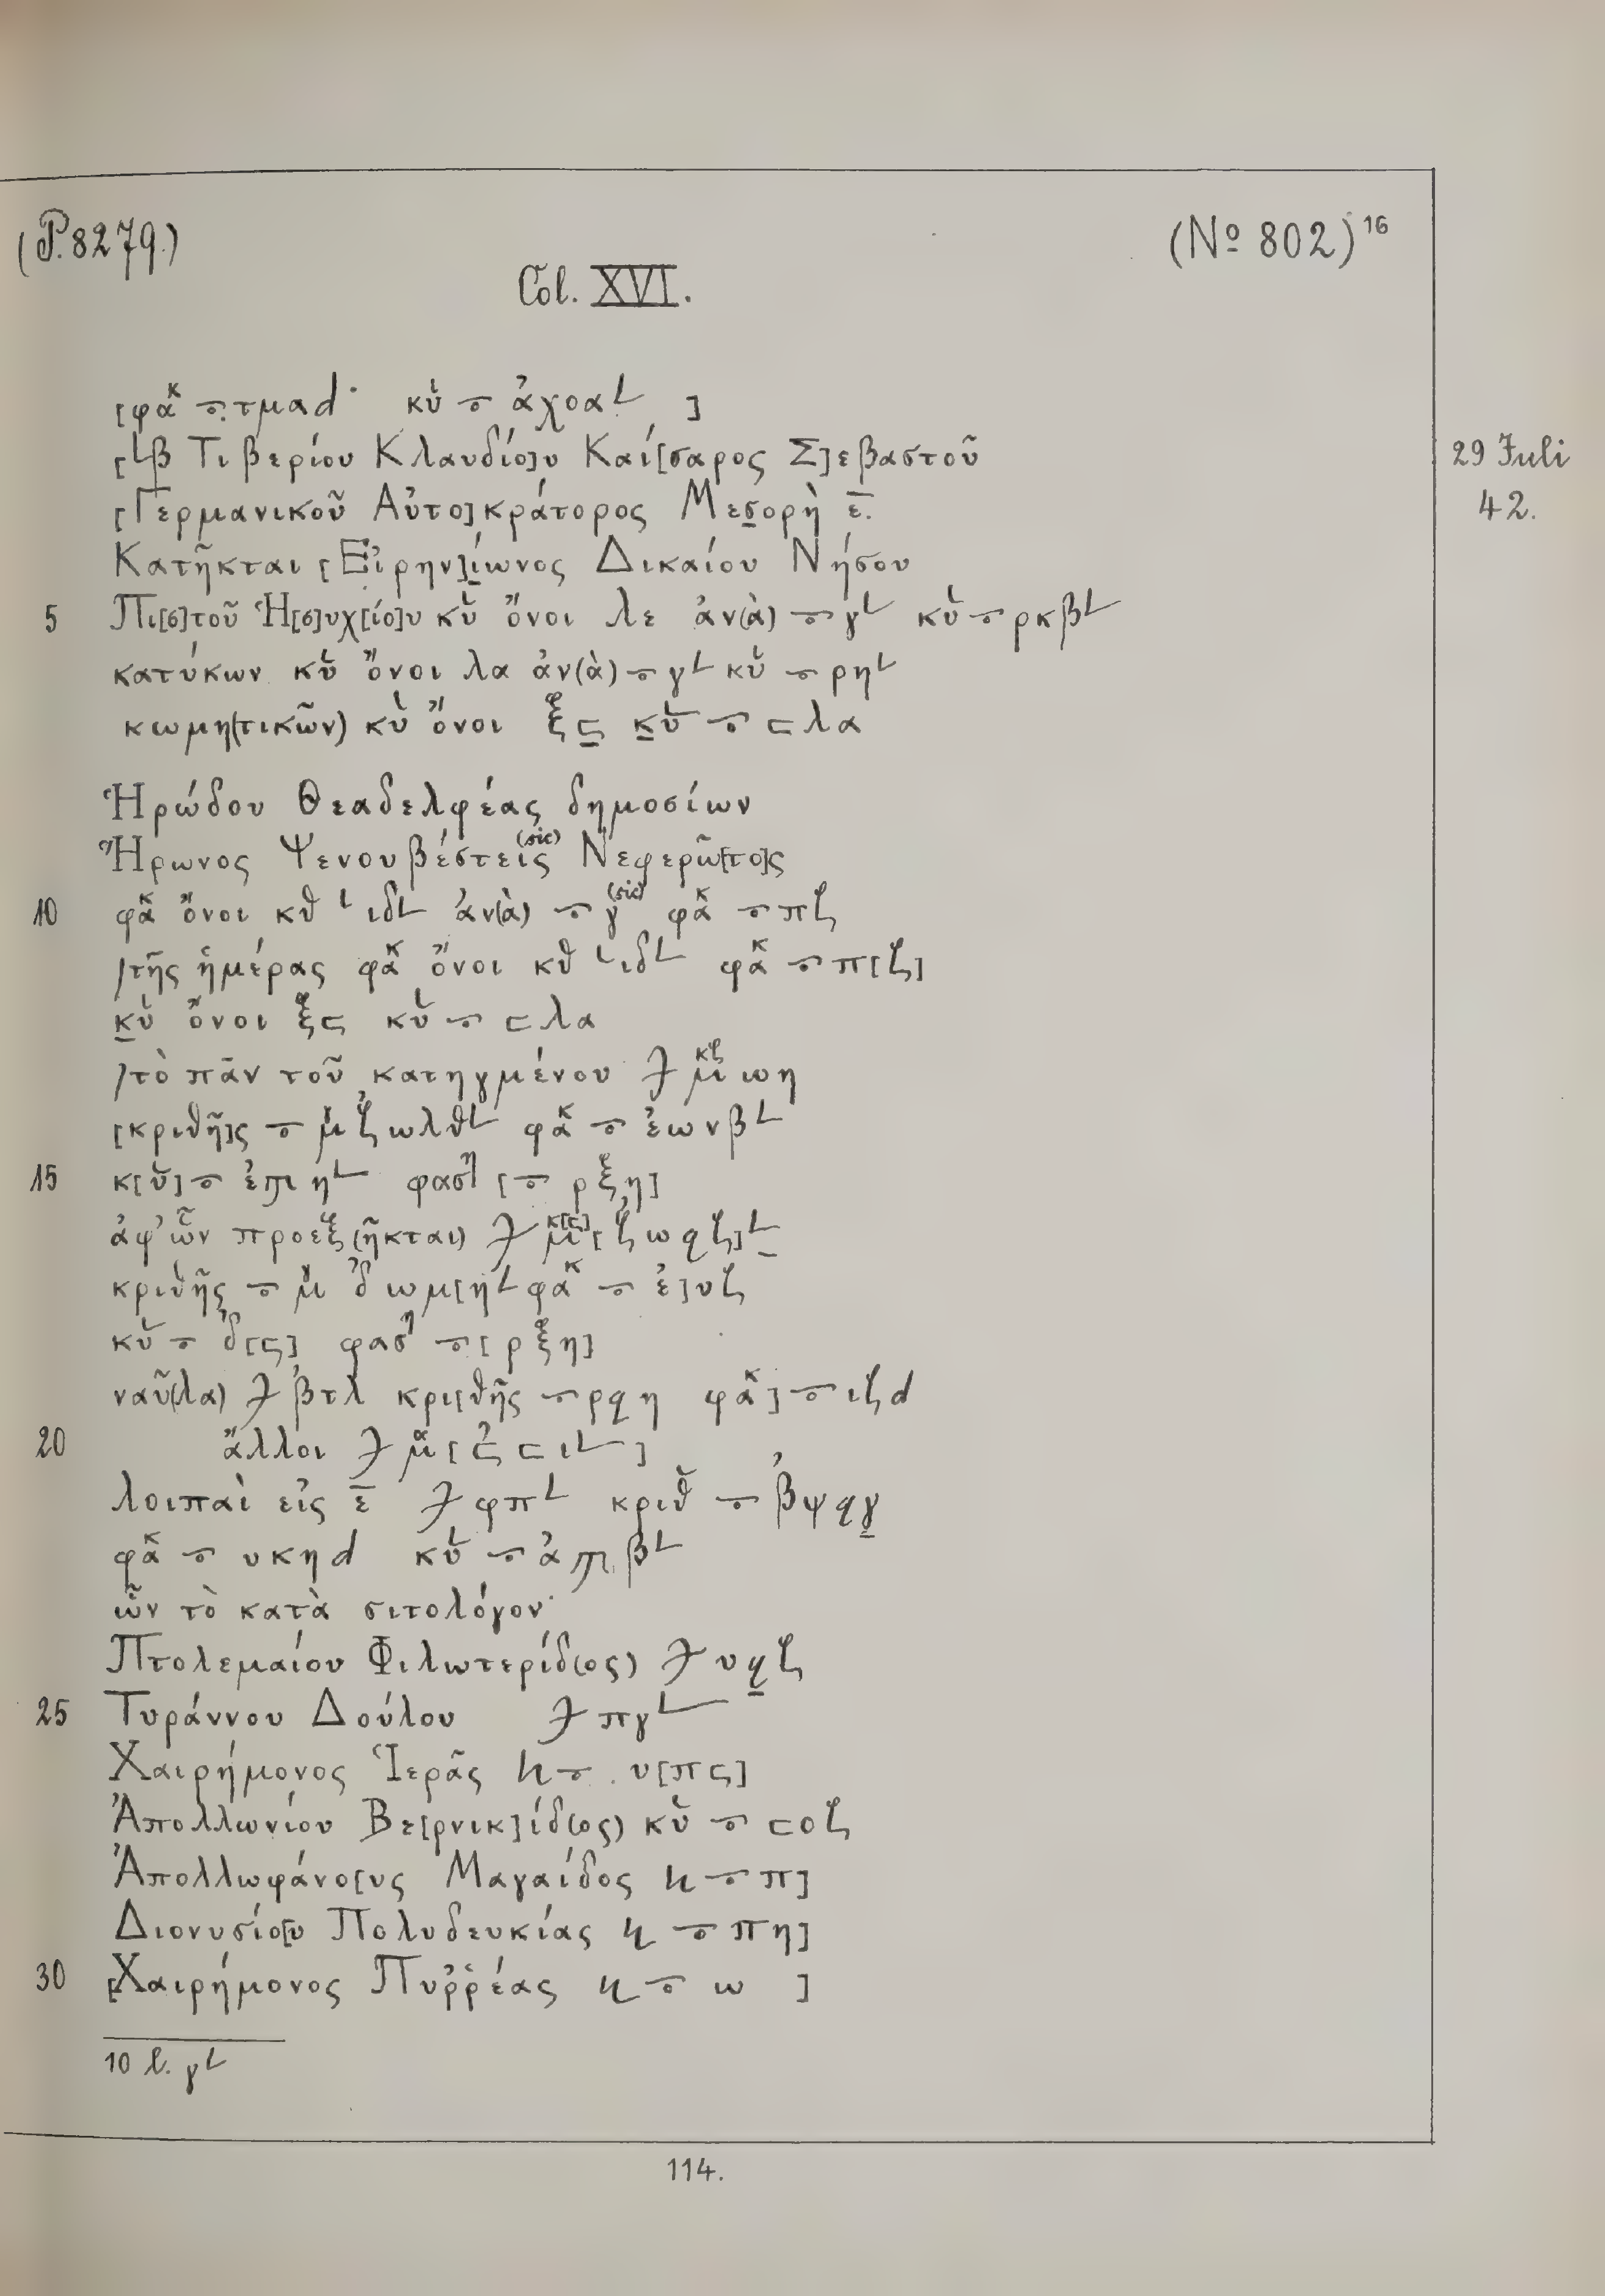 (P. 8279.)
(Nº 802)¹⁶
Col. XVI.
[φακ̄ ⲧ̣ τμαd· κὺ ⲧ ἀχοα𐅵 ]
[𐅹β Τιβερίου Κλαυδίο]υ Καί[σαρος Σ]εβαστοῦ
29 Juli
[Γερμανικοῦ Αὐτο]κράτορος Μεσορὴ ε̄.
42.
Κατῆκται [Εἰρην]ίωνος Δικαίου Νήσου
5 Πι[σ]τοῦ Ἡ[σ]υχ[ίο]υ κὺ ὄνοι λε ἀν(ὰ) ⲧ γ𐅵 κὺ ⲧ ρκβ𐅵
κατύκων κὺ ὄνοι λα ἀν(ὰ) ⲧ γ𐅵 κὺ ⲧ ρη𐅵
κωμη(τικῶν) κὺ ὄνοι ξϛ κὺ ⲧ ϲλα
Ἡρώδου Θεαδελφέας δημοσίων
Ἥρωνος Ψενουβέστεις (sic) Νεφερῶ[το]ς
10 φακ̄ ὄνοι κθ 𐅹 ιδ𐅵 ἀν(ὰ) ⲧ γ (sic) φακ̄ ⲧ πζ
/τῆς ἡμέρας φακ̄ ὄνοι κθ 𐅹ιδ𐅵 φακ̄ ⲧ π[ζ]
κὺ ὄνοι ξϛ κὺ ⲧ ϲλα
/τὸ πᾶν τοῦ κατηγμένου 𐆎 μκζ ωη
[κριθῆ]ς ⲧ μ ζωλθ𐅵 φακ̄ ⲧ ἐωνβ𐅵
15 κ[ὺ] ⲧ ἐϡιη𐅵 φασή [ⲧ ρξη]
ἀφ' ὧν προεξ(ῆκται) 𐆎 μκ[ϛ] [ζωϙζ]𐅵
κριθῆς ⲧ μ δωμ[η𐅵 φακ̄ ⲧ ἐ]υζ
κὺ ⲧ δ[ϛ] φασή ⲧ [ρξη]
ναῦ(λα) 𐆎 βτλ κρι[θῆς ⲧ ρϙη φακ̄] ⲧ ιζd
20 ἄλλοι 𐆎 μα [ϛϲι𐅵 ]
λοιπαὶ εἰς ε̄ 𐆎 φπ𐅵 κριθ ⲧ βψϙγ
φακ̄ ⲧ υκηd κὺ ⲧ ἀϡιβ𐅵
ὧν τὸ κατὰ σιτολόγον·
Πτολεμαίου Φιλωτερίδ(ος) 𐆎 υϙζ
25 Τυράννου Δούλου 𐆎 πγ𐅵
Χαιρήμονος Ἱερᾶς ϰ ⲧ . υ[πϛ]
Ἀπολλωνίου Βε[ρνικ]ίδ(ος) κὺ ⲧ ϲοζ
Ἀπολλωφάνο[υς Μαγαίδος ϰ ⲧ π]
Διονυσίο[υ Πολυδευκίας ϰ ⲧ πη]
30 [Χαιρήμονος Πυῤῥέας ϰ ⲧ ω ]
10 l. γ𐅵
114.